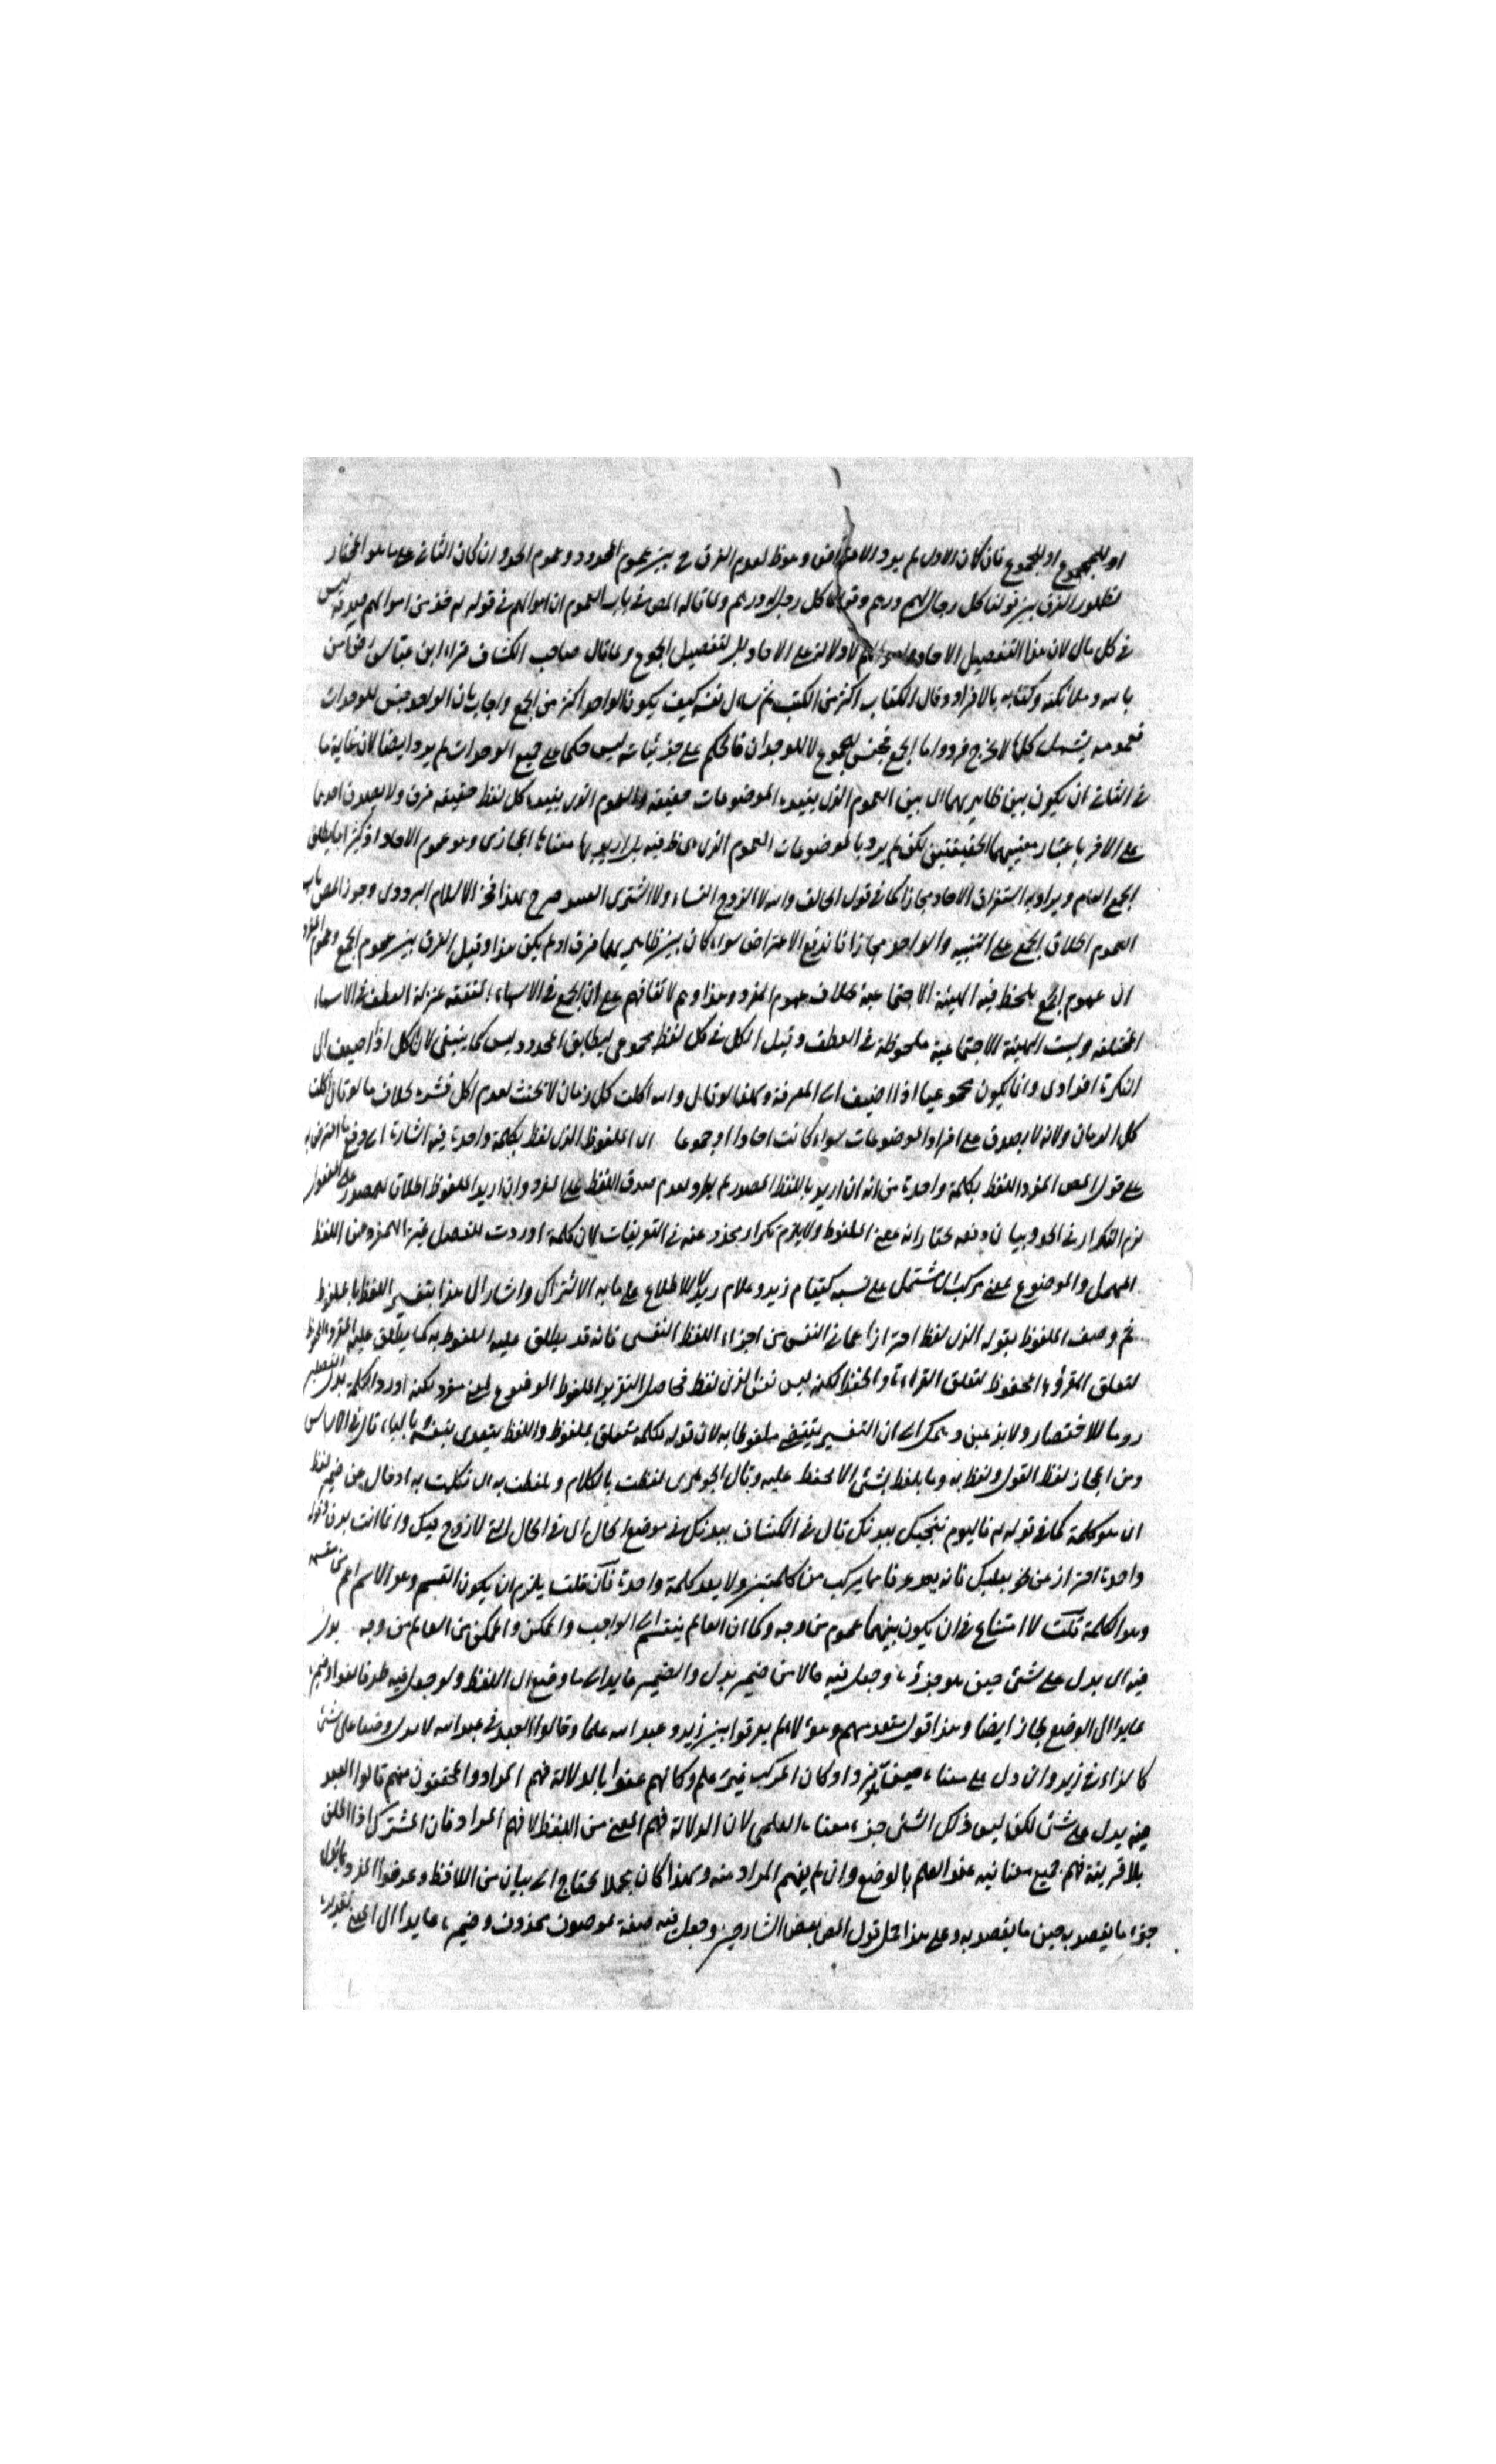 او للمجموع او للمجموع فان كان الاول لم يرد الاعتراض وهو ظ لعدم الفرق ح بين عموم المحدود وعموم الحد وان كان الثاني على ما هو المختار
لظهور الفرق بين قولنا كل رجال لهم درهم وقولنا كل رجل له درهم وما قاله المص في باب العموم ان اموالهم في قوله تع خذ من اموالهم صدقة ليس
في كل مال لان هذا التفصيل الاحاد لا دلالة على الاحاد بل لتفصيل الجموع وما قال صاحب الكشاف قراء ابن عباس كل آمن
بالله وملائكته وكتابه بالافراد وقال الكتاب اكثر من الكتب ثم سال نفسه كيف يكون الواحد اكثر من الجمع واجاب بان الواحد جنس للوحدات
فعمومه يشمل كلها لا يخرج فرد واما الجمع فجنس للجموع لا للوحدان فالحكم على جزئياته ليس حكما على جميع الوحدات لم يرد ايضا لان غاية ما
في الثاني ان يكون بين ظاهريهما اي بين العموم الذي يفيده الموضوعات حقيقة والعموم الذي يفيده كل لفظ حقيقة فرق ولا يصدق احدهما
على الاخر باعتبار معنييهما الحقيقتين لكن لم يرد بالموضوعات العموم الذي هي ظ فيه بل اريد بها معناها المجازي وهو عموم الاحاد اذ كثيرا ما يطلق
الجمع العام ويراد به استغراق الاحاد مجازا كما في قول الحالف والله لا اتزوج النساء ولا اشتري العبيد صرح بهذا فخر الاسلام البزدوي وجوز المص في باب
العموم اطلاق الجمع على التثنية والواحد مجازا فاندفع الاعتراض سواء كان بين ظاهريهما فرق او لم يكن هذا وقيل الفرق بين عموم الجمع وعموم المفرد
ان عموم الجمع يلحظ فيه الهيئة الاجتماعية بخلاف عموم المفرد وهذا وهم لاتفاقهم على ان الجمع في الاسماء المتفقة بمنزلة العطف في الاسماء
المختلفة وليست الهيئة الاجتماعية ملحوظة في العطف وقيل الكل في كل لفظ مجموعي ليطابق المحدود وليس كما ينبغي لان كل اذا اضيف الى
النكرة افرادي وانما يكون مجموعيا اذا اضيف الى المعرفة ولهذا لو قال والله اكلت كل رمان لا يحنث لعدم اكل قشره بخلاف ما لو قال اكلت
كل الرمان ولانه لا يصدق على افراد الموضوعات سواء كانت احادا او جموعا اي الملفوظ الذي لفظ بكلمة واحدة فيه اشارة الى دفع ما اعترض به
على قول المص المفرد اللفظ بكلمة واحدة من انه ان اريد باللفظ المصدر لم يطرد لعدم صدق اللفظ على المفرد وان اريد الملفوظ اطلاقا للمصدر على المفعول
لزم التكرار في الحد وبيان دفعه نختار انه بمعنى الملفوظ ولا يلزم تكرار يحذر عنه في التعريفات لان كلمة اوردت للفصل يميز المفرد عن اللفظ
المهمل والموضوع بمعنى مركب اشتمل على نسبة كيقام زيد وغلام زيد للاطلاع على ما به الاشتراك واشار الى هذا بتفسير اللفظ بالملفوظ
ثم وصف الملفوظ بقوله الذي لفظ احترازا عما في النفس من اجزاء اللفظ النفسي فانه قد يطلق عليه الملفوظ به كما يطلق عليه المقروء والمحفوظ
لتعلق المقروء والمحفوظ لتعلق القراءة والحفظ لكنه ليس نفس الذي لفظ فحاصل التقرير الملفوظ الموضوع لمعنى مفرد لكنه اورد الكلمة بدل التفصيل
روما للاختصار ولابن معين ويمكن ان التفسير يقتضي ملفوظا به لان قوله بكلمة متعلق بملفوظ واللفظ يتعدى بنفسه وبالباء قال في الاساس
ومن المجاز لفظ القول ولفظ به وما يلفظ بشئ الا حفظ عليه وقال الجوهري لفظت بالكلام وتلفظت به اي تكلمت به ادخال من ضمير لفظ
اي هو كلمة كما في قوله تع فاليوم ننجيك ببدنك قال في الكشاف ببدنك في موضع الحال اي في الحال التي لا روح فيك وانما انت بدن وقوله
واحدة احتراز عن نحو بعلبك فانه يعد عرفا مما يركب من كلمتين ولا يعد كلمة واحدة فان قلت يلزم ان يكون القسم وهو الاسم اعم من مقسمه
وهو الكلمة قلت لا امتناع في ان يكون بينهما عموم من وجه وكما ان العالم ينقسم الى الواجب والممكن والممكن من العالم من وجه يدل
فيه اي يدل على شئ حين هو جزؤه وجعل فيه حالا من ضمير يدل والضمير عايد الى ما وضع اي اللفظ ولو جعل فيه ظرفا لغوا وضميره
عايد الى الوضع لجاز ايضا وهذا قول متقدميهم وهؤلاء لم يفرقوا بين زيد وعبد الله علما وقالوا العبد في عبد الله لا يدل وضعا على شئ
كالزاء في زيد وان دل على معناه حين مفردا وكان المركب غير علم وكانهم عنوا بالدلالة فهم المراد والمحققون منهم قالوا العبد
حينه يدل على شئ لكن ليس ذلك الشئ جزء معناه العلمي لان الدلالة فهم المعنى من اللفظ لا فهم المراد فان المشترك اذا اطلق
بلا قرينة فهم جميع معانيه عند العلم بالوضع وان لم يفهم المراد منه ولهذا كان مجملا يحتاج الى بيان من اللافظ وعرفوا المفرد بما يدل
جزء ما يقصد به حين ما يقصد به وعلى هذا حمل قول المص بعض الشارحين وجعل فيه صفة لموصوف محذوف وضميره عايدا الى المعنى تقديره